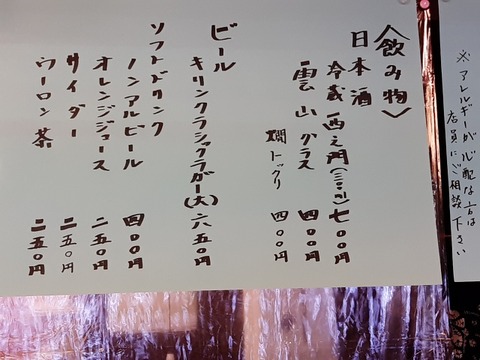 〈飲み物〉
日本酒
冷蔵 西之門(三〇〇ml) 七〇〇円
雲山 グラス 四〇〇円
燗 トックリ 四〇〇円
ビール
キリンクラシックラガー(大) 六五〇円
ソフトドリンク
ノンアルビール 四〇〇円
オレンジジュース 二五〇円
サイダー 二五〇円
ウーロン茶 二五〇円
※アレルギーが心配な方は
店員にご相談下さい